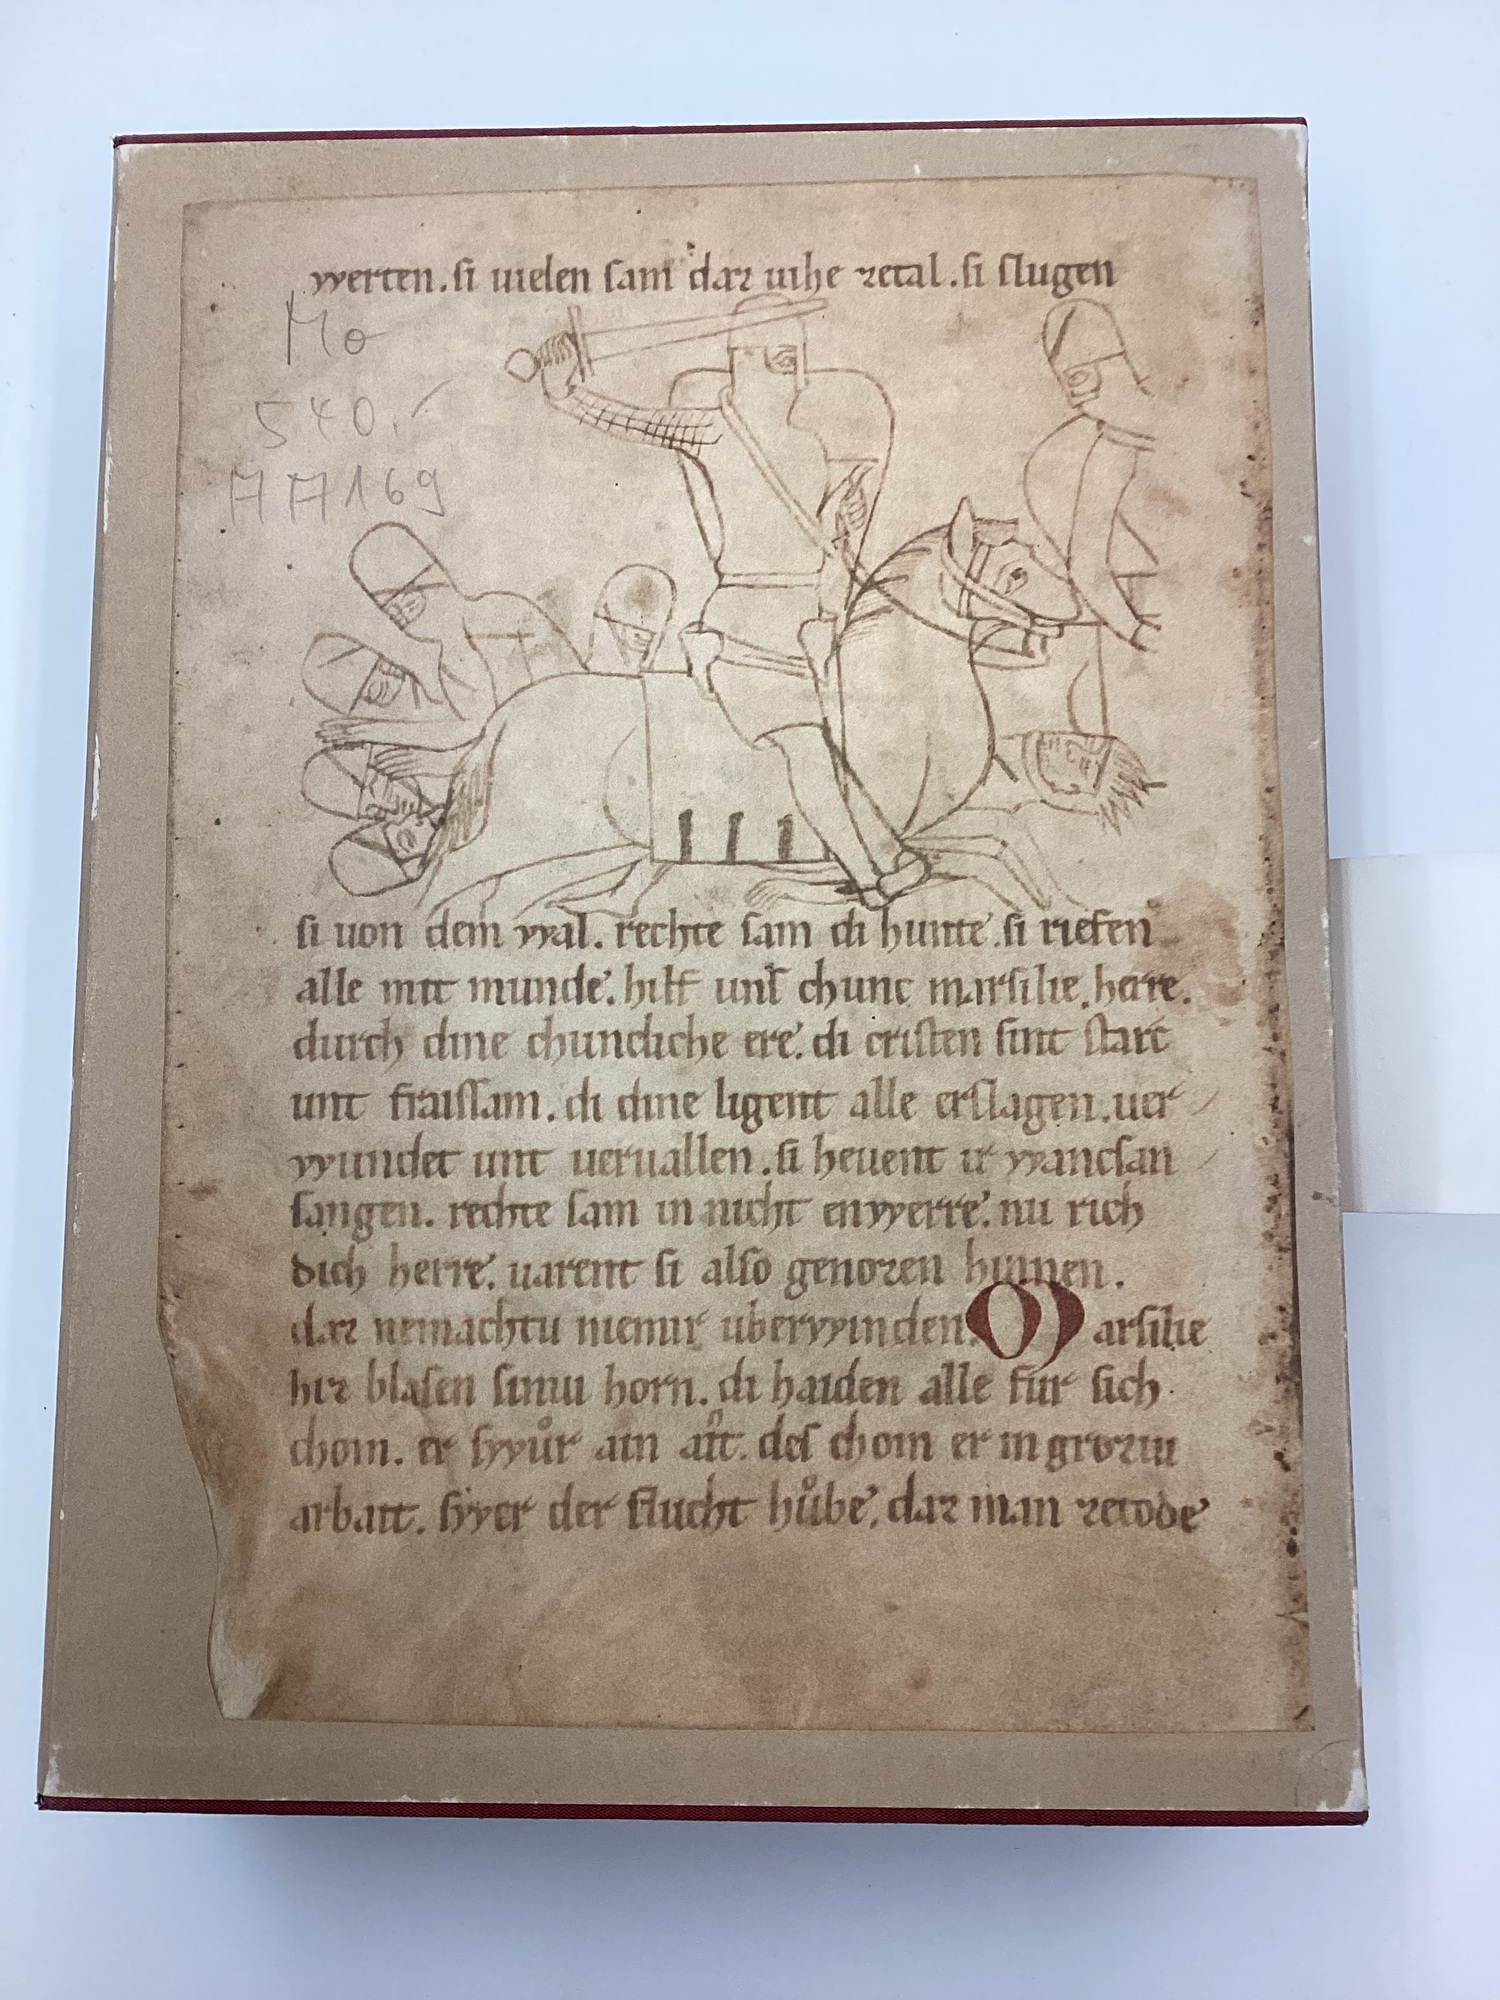 werten. si uielen sam daz uihe zetal. si slugen
Mo
540.-
77169
si uon dem wal. rechte sam di hunte. si riefen
alle mit munde. hilf uns chunc marsilie, herre.
durch dine chuncliche ere. di cristen sint starc
unt fraissam. di dine ligent alle erslagen. uer
wundet unt ueruallen. si heuent ir wancsan
sangen. rechte sam in nicht enwerre. nu rich
dich herre. uarent si also genozen hinnen.
daz nemachtu niemir uberwinden. Marsilie
hiz blasen siniu horn. di haiden alle fur sich
chom. er swůr ain ait. des chom er in groziu
arbait. swer der flucht hůbe. daz man zetode